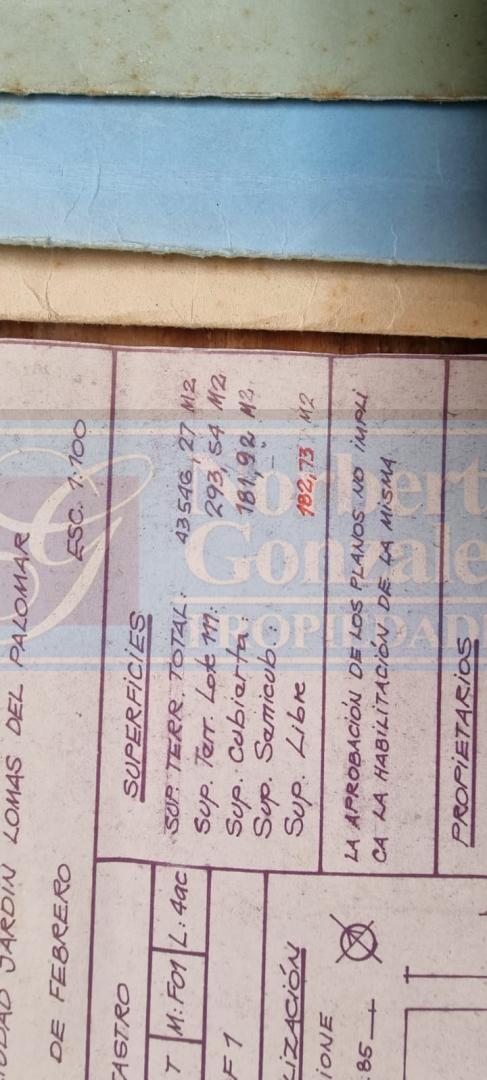 CIUDAD JARDIN LOMAS DEL PALOMAR
DE FEBRERO
ESC. 1:100
SUPERFICIES
SUP. TERR. TOTAL: 43546,27 M2
Sup. Terr. Lote 111: 293,54 M2
Sup. Cubierta: 181,92 M2.
Sup. Semicub.: -
Sup. Libre 182,73 M2
LA APROBACIÓN DE LOS PLANOS NO IMPLI
CA LA HABILITACIÓN DE LA MISMA
PROPIETARIOS
CATASTRO
T M: F01 L: 4ac
F 1
LIZACIÓN
IONE
85
G
Norbert
Gonzale
PROPIEDADE